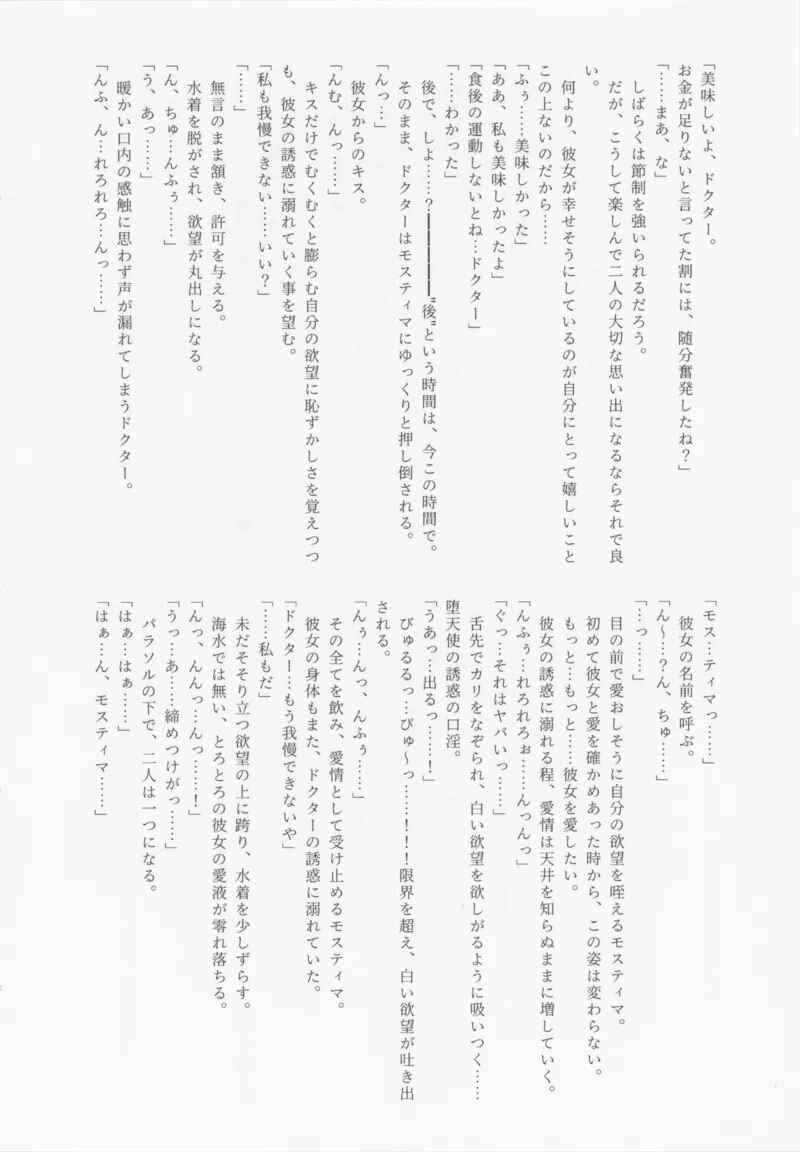 「美味しいよ、ドクター。
お金が足りないと言ってた割には、随分奮発したね？」
「……まあ、な」
しばらくは節制を強いられるだろう。
だが、こうして楽しんで二人の大切な思い出になるならそれで良
い。
何より、彼女が幸せそうにしているのが自分にとって嬉しいこと
この上ないのだから……
「ふぅ……美味しかった」
「ああ、私も美味しかったよ」
「食後の運動しないとね…ドクター」
「……わかった」
後で、しよ……？━━━━━━"後"という時間は、今この時間で。
そのまま、ドクターはモスティマにゆっくりと押し倒される。
「んっ…」
彼女からのキス。
「んむ、んっ……」
キスだけでむくむくと膨らむ自分の欲望に恥ずかしさを覚えつつ
も、彼女の誘惑に溺れていく事を望む。
「私も我慢できない……いい？」
「……」
無言のまま頷き、許可を与える。
水着を脱がされ、欲望が丸出しになる。
「ん、ちゅ…んふぅ……」
「う、あっ……」
暖かい口内の感触に思わず声が漏れてしまうドクター。
「んふ、ん…れろれろ…んっ……」
「モス…ティマっ……」
彼女の名前を呼ぶ。
「ん～…？ん、ちゅ……」
「…っ……」
目の前で愛おしそうに自分の欲望を咥えるモスティマ。
初めて彼女と愛を確かめあった時から、この姿は変わらない。
もっと…もっと……彼女を愛したい。
彼女の誘惑に溺れる程、愛情は天井を知らぬままに増していく。
「んふぅ…れろれろぉ……んっんっ」
「ぐっ…それはヤバいっ……」
舌先でカリをなぞられ、白い欲望を欲しがるように吸いつく……
堕天使の誘惑の口淫。
「うあっ…出るっ……！」
びゅるるっ…びゅ～っ……！！！限界を超え、白い欲望が吐き出
される。
「んぅ…んっ、んふぅ……」
その全てを飲み、愛情として受け止めるモスティマ。
彼女の身体もまた、ドクターの誘惑に溺れていた。
「ドクター…もう我慢できないや」
「……私もだ」
未だそそり立つ欲望の上に跨り、水着を少しずらす。
海水では無い、とろとろの彼女の愛液が零れ落ちる。
「んっ、んんっ…んっ……！」
「うっ…あ……締めつけがっ……」
パラソルの下で、二人は一つになる。
「はぁ…はぁ……」
「はぁ…ん、モスティマ……」